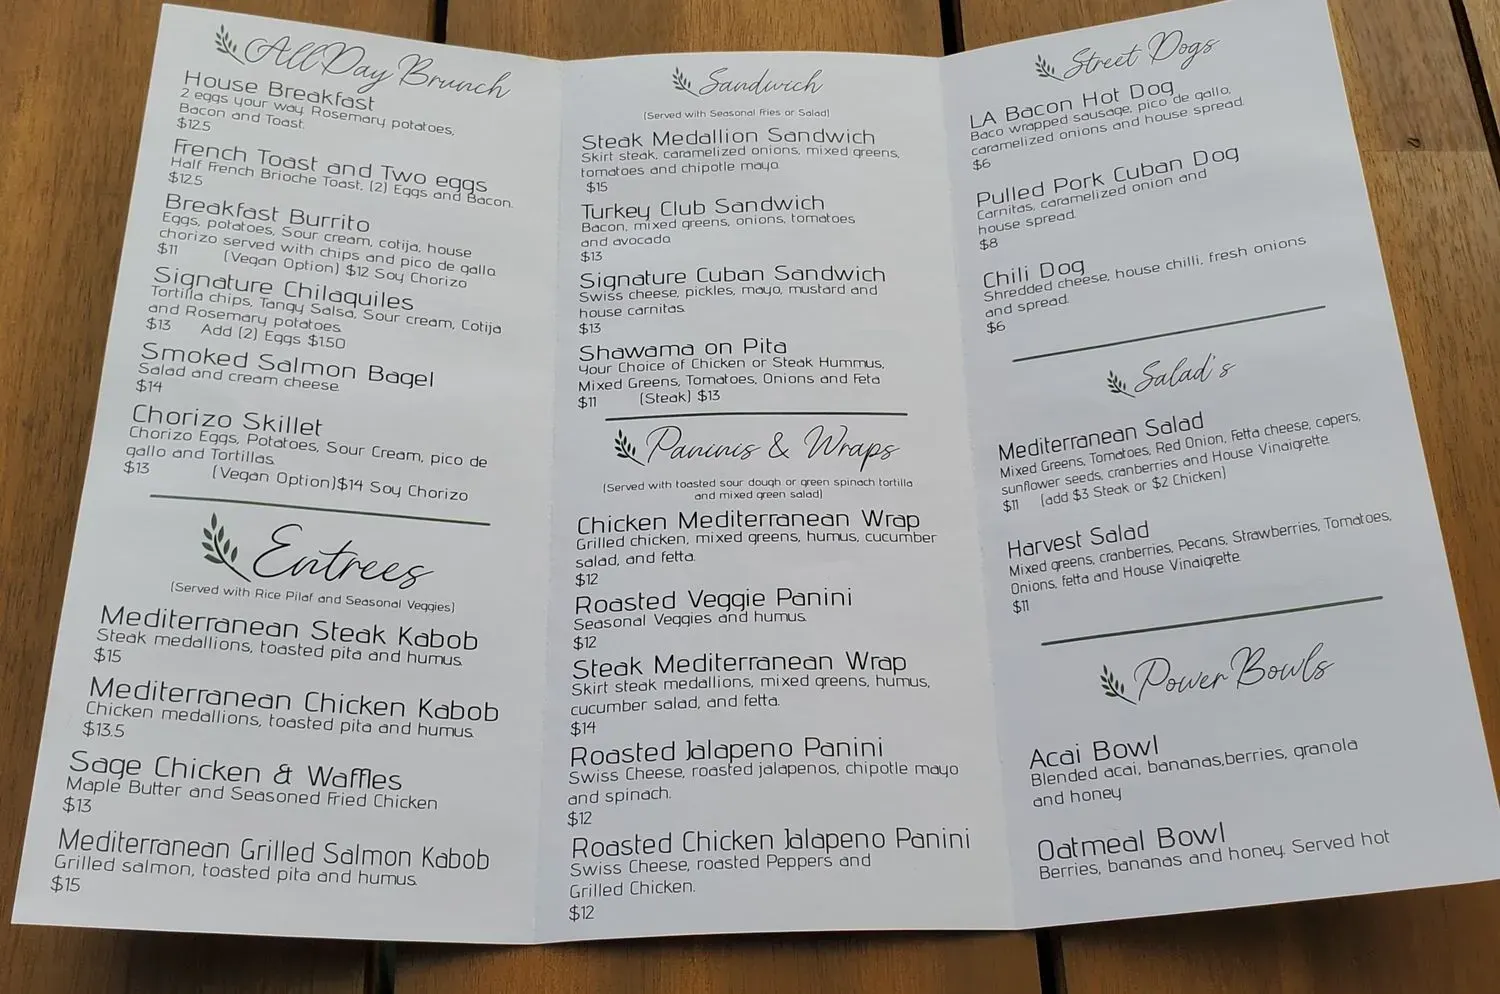 All Day Brunch
House Breakfast
2 eggs your way Rosemary potatoes,
Bacon and Toast.
$12.5
French Toast and Two eggs
Half French Brioche Toast, (2) Eggs and Bacon.
$12.5
Breakfast Burrito
Eggs, potatoes, Sour cream, cotija, house
chorizo served with chips and pico de gallo
$11 (Vegan Option) $12 Soy Chorizo
Signature Chilaquiles
Tortilla chips, Tangy Salsa, Sour cream, Cotija
and Rosemary potatoes
$13 Add (2) Eggs $1.50
Smoked Salmon Bagel
Salad and cream cheese
$14
Chorizo Skillet
Chorizo Eggs, Potatoes, Sour Cream, pico de
gallo and Tortillas
$13 (Vegan Option)$14 Soy Chorizo
Entrees
(Served with Rice Pilaf and Seasonal Veggies)
Mediterranean Steak Kabob
Steak medallions, toasted pita and humus.
$15
Mediterranean Chicken Kabob
Chicken medallions, toasted pita and humus.
$13.5
Sage Chicken & Waffles
Maple Butter and Seasoned Fried Chicken
$13
Mediterranean Grilled Salmon Kabob
Grilled salmon, toasted pita and humus.
$15
Sandwich
(Served with Seasonal Fries or Salad)
Steak Medallion Sandwich
Skirt steak, caramelized onions, mixed greens,
tomatoes and chipotle mayo.
$15
Turkey Club Sandwich
Bacon, mixed greens, onions, tomatoes
and avocado
$13
Signature Cuban Sandwich
Swiss cheese, pickles, mayo, mustard and
house carnitas.
$13
Shawama on Pita
your Choice of Chicken or Steak Hummus,
Mixed Greens, Tomatoes, Onions and Feta
$11 (Steak) $13
Paninis & Wraps
(Served with toasted sour dough or green spinach tortilla
and mixed green salad)
Chicken Mediterranean Wrap
Grilled chicken, mixed greens, humus, cucumber
salad, and fetta.
$12
Roasted Veggie Panini
Seasonal Veggies and humus.
$12
Steak Mediterranean Wrap
Skirt steak medallions, mixed greens, humus,
cucumber salad, and fetta.
$14
Roasted Jalapeno Panini
Swiss Cheese, roasted jalapenos, chipotle mayo
and spinach.
$12
Roasted Chicken Jalapeno Panini
Swiss Cheese, roasted Peppers and
Grilled Chicken.
$12
Street Dogs
LA Bacon Hot Dog
Baco wrapped sausage, pico de gallo,
caramelized onions and house spread.
$6
Pulled Pork Cuban Dog
Carnitas, caramelized onion and
house spread.
$8
Chili Dog
Shredded cheese, house chilli, fresh onions
and spread.
$6
Salad's
Mediterranean Salad
Mixed Greens, Tomatoes, Red Onion, Fetta cheese, capers,
sunflower seeds, cranberries and House Vinaigrette
$11 (add $3 Steak or $2 Chicken)
Harvest Salad
Mixed greens, cranberries, Pecans, Strawberries, Tomatoes,
Onions, fetta and House Vinaigrette
$11
Power Bowls
Acai Bowl
Blended acai, bananas,berries, granola
and honey
Oatmeal Bowl
Berries, bananas and honey. Served hot